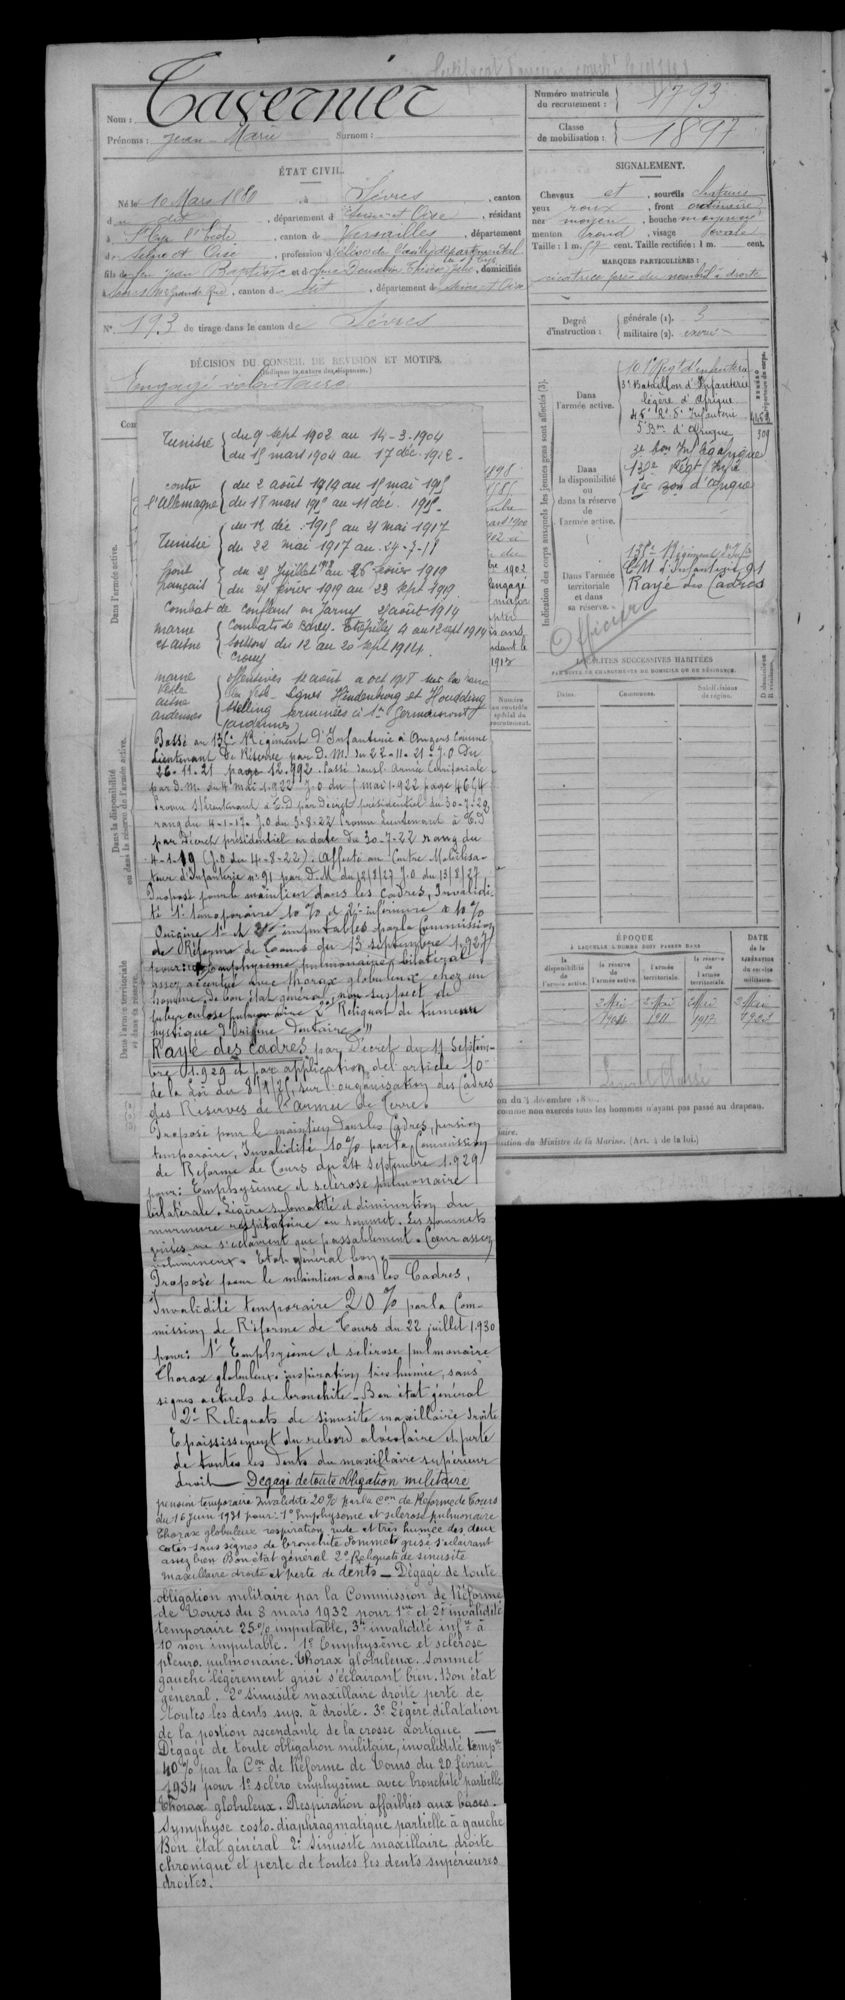 Nom : Tavernier
Prénoms : Jean-Marie Surnom :
Numéro matricule
du recrutement : 1793
Classe
de mobilisation : 1897
ÉTAT CIVIL.
Né le 10 Mars 1880, à Sèvres, canton
du dit, département de Seine et Oise, résidant
à St Cyr l'Ecole, canton de Versailles, département
de Seine et Oise, profession d
fils de feu Jean Baptiste et de, domiciliés
à Sèvres Grande Rue, canton du dit, département de Seine et Oise
N° 193 de tirage dans le canton de Sèvres
SIGNALEMENT.
Cheveux et, sourcils châtains
yeux roux, front ordinaire
nez moyen, bouche moyenne
menton rond, visage ovale
Taille : 1 m. cent. Taille rectifiée : 1 m. cent.
MARQUES PARTICULIÈRES :
cicatrice près du nombril à droite
Degré
d'instruction :
générale (1). 3
militaire (2). exercé
DÉCISION DU CONSEIL DE RÉVISION ET MOTIFS.
(Indiquer la nature des dispenses.)
Engagé volontaire
Indication des corps auxquels les jeunes gens sont affectés (3).
Dans
l'armée active.
101e Régt d'infanterie
3e Bataillon d'Infanterie
légère d'Afrique
5e Bon d'Afrique
Dans
la disponibilité
ou
dans la réserve
de
l'armée active.
135e Régt Infie
1er Bon d'Afrique
Dans l'armée
territoriale
et dans
sa réserve.
135e Régiment d'Infie
C M d'infanterie 91
Rayé des Cadres
Officier
LOCALITÉS SUCCESSIVES HABITÉES
PAR SUITE DE CHANGEMENTS DE DOMICILE OU DE RÉSIDENCE.
Dates. Communes. Subdivisions
de région.
ÉPOQUE
À LAQUELLE L'HOMME DOIT PASSER DANS
DATE
de la
LIBÉRATION
du service
militaire.
la
disponibilité
de
l'armée active.
la réserve
de
l'armée active.
l'armée
territoriale.
la réserve
de
l'armée
territoriale.
2 Mai 2 Mai 2 Mai 2 Mai
1904 1911 1917 1923
comme non exercés tous les hommes n'ayant pas passé au drapeau.
sition du Ministre de la Marine. (Art. 4 de la loi.)
Dans l'armée active.
Dans la disponibilité
ou dans la réserve de l'armée active.
Dans l'armée territoriale
et dans sa réserve.
Numéro
au contrôle
spécial du
recrutement.
Tunisie du 9 sept 1902 au 14-3-1904
du 15 mars 1904 au 17 déc. 1912.
contre
l'Allemagne
du 2 août 1914 au 15 mai 1915
du 18 mars 1915 au 11 déc. 1915
Tunisie
du 12 déc. 1915 au 21 mai 1917
du 22 mai 1917 au 24-7-18
front
français
du 25 Juillet 1918 au 26 février 1919
du 27 février 1919 au 23 sept 1919
Combat de Conflans en Jarny août 1914
marne
et aisne
Combats de Barcy. Etrépilly 4 au 12 sept 1914
Soissons du 12 au 20 sept 1914.
Crouy
marne
Vesle
aisne
ardennes
offensives août à oct 1918 sur la marne
la Vesle. Lignes Hindenburg et Hunding
Stelling terminées à
(ardennes)
Passé au 135e Régiment d'Infanterie à Angers comme
Lieutenant de Réserve par D.M. du 22-11-21 J.O du
26-11-21 page 12.992. Passé dans l'Armée territoriale
par D.M. du 4 mai 1922 J.O du 5 mai 1922 page 4654
Promu s/lieutenant à T.D par Décret présidentiel du 30-7-22
rang du 4-1-17. J.O du 3-8-22 Promu lieutenant à T.D
par Décret présidentiel en date du 30-7-22 rang du
4-1-19 (J.O du 4-8-22). Affecté au Centre Mobilisa-
teur d'Infanterie n° 91 par D.M du 12/8/27 J.O. du 13/8/27
Proposé pour le maintien dans les cadres, Invalidi-
té 1° temporaire 10 % et 2° inférieure à 10 %
Origine 1° et 2° imputables par la Commission
de Réforme de Tours du 13 septembre 1.927
pour : 1° Emphysème pulmonaire bilatéral
assez accentué avec thorax globuleux chez un
homme de bon état général non suspect de
tuberculose pulmonaire 2° Reliquat de tumeur
kystique d'Origine Dentaire"
Rayé des cadres par Décret du 11 Septem-
bre 1.929 et par application de l'article 10
de la Loi du 8/1/25, sur l'organisation des Cadres
des Réserves de l'Armée de Terre.
Proposé pour le maintien dans les Cadres, pension
temporaire, Invalidité 10% par la Commission
de Réforme de Tours du 24 septembre 1.929
pour : Emphysème et sclérose pulmonaire
bilatérale. Légère submatité et diminution du
murmure respiratoire au sommet. Les sommets
grisés ne s'éclairent que passablement. Cœur assez
volumineux. Etat général bon.
Proposé pour le maintien dans les Cadres,
Invalidité temporaire 20 % par la Com-
mission de Réforme de Tours du 22 juillet 1.930
pour : 1° Emphysème et sclérose pulmonaire
Thorax globuleux inspiration très humée, sans
signes actuels de bronchite - Bon état général
2° Reliquats de sinusite maxillaire droite
Epaississement du rebord alvéolaire et perte
de toutes les dents du maxillaire supérieur
droit — Dégagé de toute obligation militaire
pension temporaire Invalidité 20% par la Con de Réforme de Tours
du 16 Juin 1931 pour : 1° Emphysème et sclérose pulmonaire
Thorax globuleux respiration rude et très humée des deux
cotés sans signes de bronchite Sommets grisé s'éclairant
assez bien Bon état général 2° Reliquats de sinusite
maxillaire droite et perte de dents — Dégagé de toute
obligation militaire par la Commission de Réforme
de Tours du 8 mars 1932 pour 1re et 2e invalidité
temporaire 25% imputable, 3e invalidité infre à
10 non imputable. 1° Emphysème et sclérose
pleuro. pulmonaire. Thorax globuleux. Sommet
gauche légèrement grisé s'éclairant bien. Bon état
général. 2° sinusite maxillaire droite perte de
toutes les dents sup. à droite. 3° Légère dilatation
de la portion ascendante de la crosse aortique —
Dégagé de toute obligation militaire, invalidité tempre
40% par la Con de Réforme de Tours du 20 février
1934 pour 1° scléro emphysème avec bronchite partielle
Thorax globuleux. Respiration affaiblies aux bases.
Symphyse costo-diaphragmatique partielle à gauche
Bon état général 2° Sinusite maxillaire droite
chronique et perte de toutes les dents supérieures
droites.